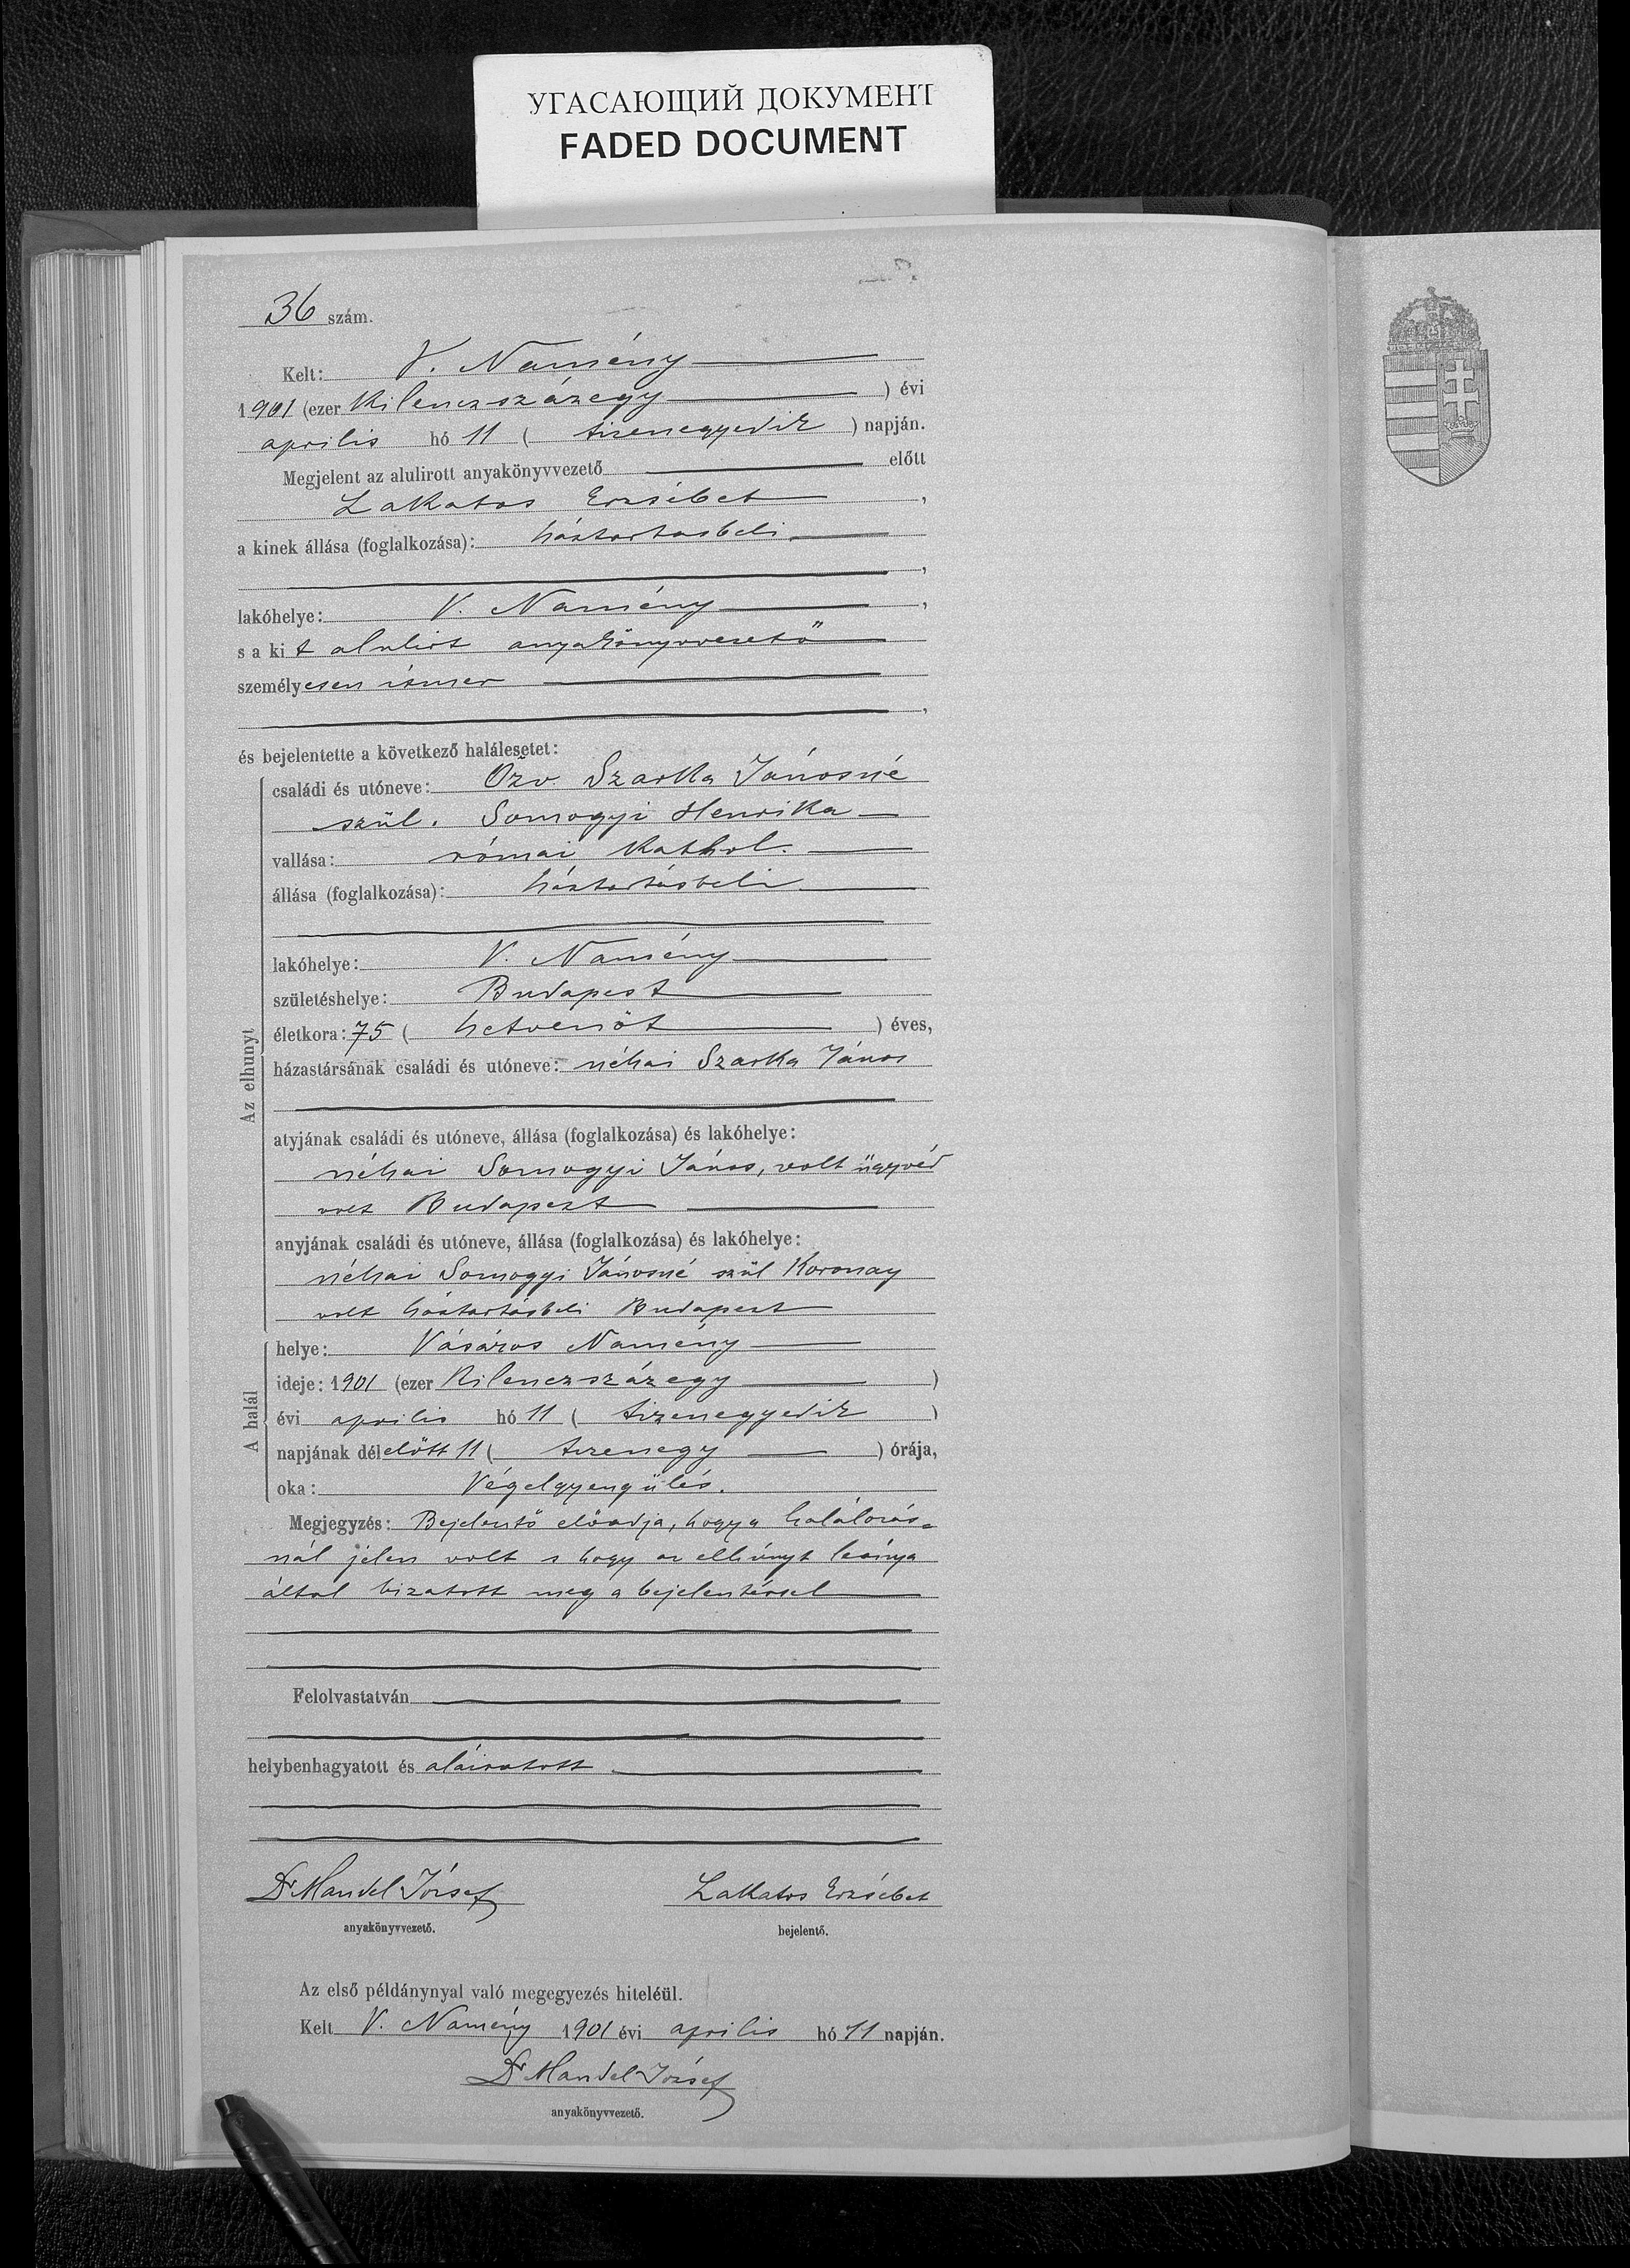 УГАСАЮЩИЙ ДОКУМЕНТ
FADED DOCUMENT
36 szám.
Kelt: V. Namény
1901 (ezer kilenczszázegy ) évi
aprilis hó 11 ( tizenegyedik ) napján.
Megjelent az alulirott anyakönyvvezető előtt
Lakatos Erzsébet ,
a kinek állása (foglalkozása): háztartasbeli
,
lakóhelye: V. Namény ,
s a kit alulirt anyakönyvvezető
személyesen ismer
,
és bejelentette a következő halálesetet:
Az elhunyt
családi és utóneve: Özv. Szarka Jánosné
szül. Somogyi Henrika
vallása: római kathol.
állása (foglalkozása): háztartásbeli
lakóhelye: V. Namény
születéshelye: Budapest
életkora: 75 ( hetvenöt ) éves,
házastársának családi és utóneve: néhai Szarka János
atyjának családi és utóneve, állása (foglalkozása) és lakóhelye:
néhai Somogyi János, volt ügyvéd
volt Budapest
anyjának családi és utóneve, állása (foglalkozása) és lakóhelye:
néhai Somogyi Jánosné szül Koronay
volt háztartásbeli Budapest
A halál
helye: Vásáros Namény
ideje: 1901 (ezer kilenczszázegy )
évi aprilis hó 11 ( tizenegyedik )
napjának délelőtt 11 ( tizenegy ) órája,
oka: Végelgyengülés.
Megjegyzés: Bejelentő előadja, hogy a halálozás=
nál jelen volt s hogy az elhúnyt leánya
által bizatott meg a bejelentéssel
Felolvastatván
helybenhagyatott és aláiratott.
Dr Mandel József
anyakönyvvezető.
Lakatos Erzsébet
bejelentő.
Az első példánynyal való megegyezés hiteléül.
Kelt V. Namény 1901 évi aprilis hó 11 napján.
Dr Mandel József
anyakönyvvezető.